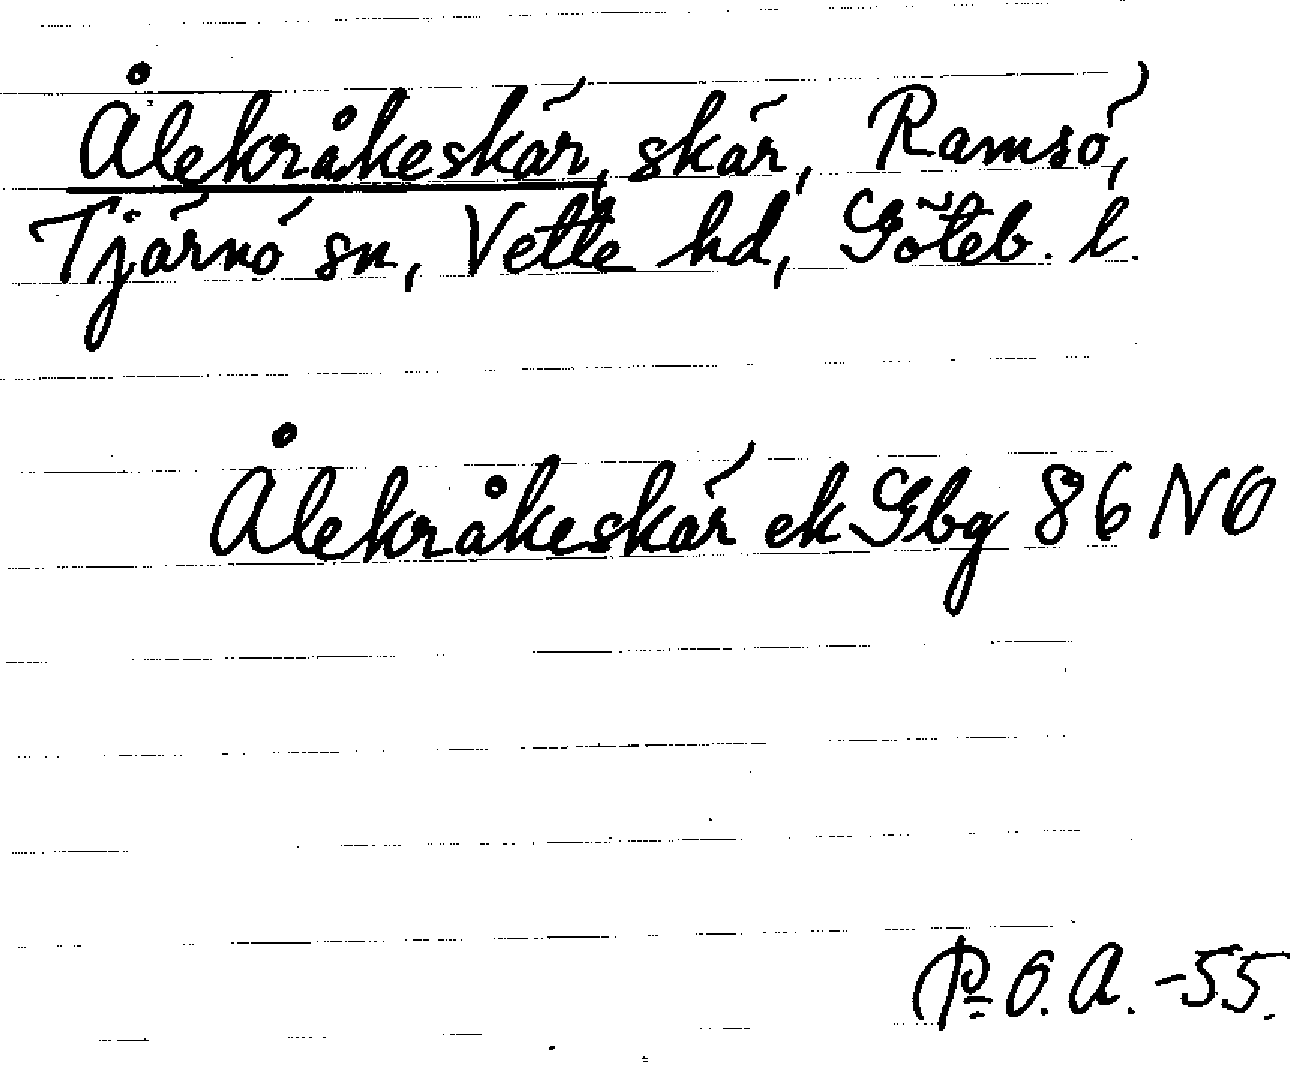 Ålekråkeskär, skär, Ramsö,
Tjärnö sn, Vette hd, Göteb. l.
Ålekråkeskär ek Gbg 86 NO
P. O. A. -55.